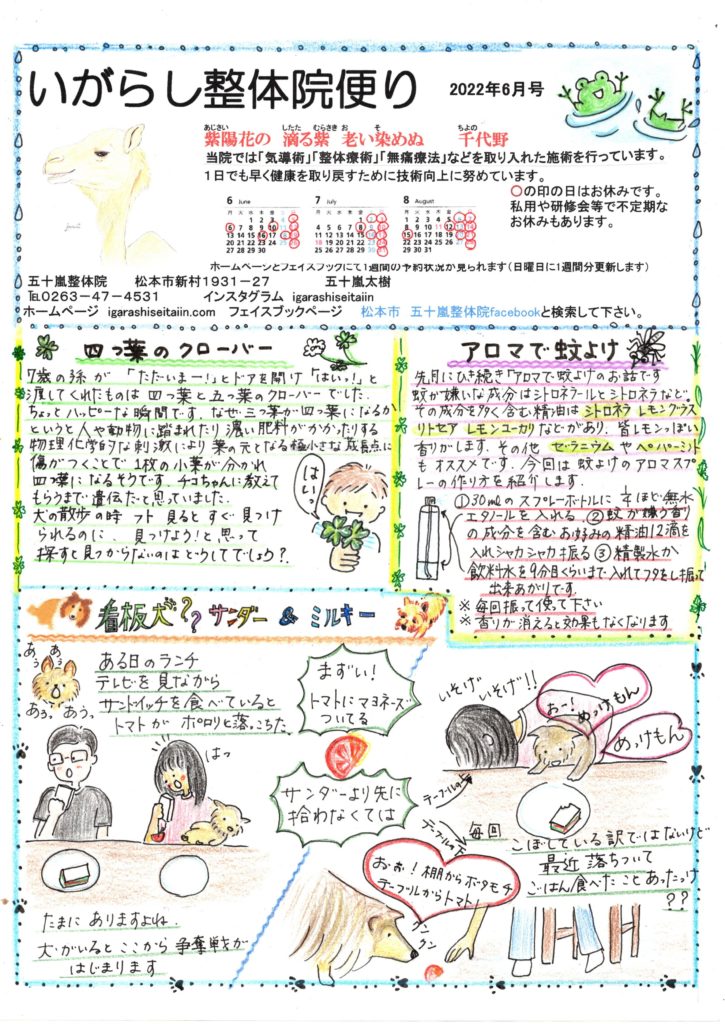 いがらし整体院便り
2022年6月号
あじさい したた むらさき お そ ちよの
紫陽花の 滴る紫 老い染めぬ 千代野
当院では「気導術」「整体療術」「無痛療法」などを取り入れた施術を行っています。
1日でも早く健康を取り戻すために技術向上に努めています。
6 June
7 July
8 August
○の印の日はお休みです。
私用や研修会等で不定期な
お休みもあります。
ホームページとフェイスブックにて1週間の予約状況が見られます(日曜日に1週間分更新します)
五十嵐整体院 松本市新村1931－27 五十嵐太樹
℡0263－47－4531 インスタグラム igarashiseitaiin
ホームページ igarashiseitaiin.com フェイスブックページ 松本市 五十嵐整体院facebookと検索して下さい。
四つ葉のクローバー
7歳の孫が「ただいまー!」とドアを開け「はいっ!」と
渡してくれたものは四つ葉と五つ葉のクローバーでした。
ちょっとハッピーな瞬間です。なぜ三つ葉が四つ葉になるか
というと人や動物に踏まれたり濃い肥料がかかったりする
物理化学的な刺激により葉の元となる極小さな成長点に
傷がつくことで1枚の小葉が分かれ
四つ葉になるそうです。チコちゃんに教えて
もらうまで遺伝だと思っていました。
犬の散歩の時フト見るとすぐ見つけ
られるのに、見つけよう!と思って
探すと見つからないのはどうしてでしょう?
はい!
アロマで蚊よけ
先月にひき続き「アロマで蚊よけのお話です
蚊が嫌いな成分はシトロネラールとシトロネラなど。
その成分を多く含む精油はシトロネラ レモングラス
リトセア レモンユーカリなどがあり、皆レモンっぽい
香りがします。その他 ゼラニウムやペパーミント
もオススメです。今回は蚊よけのアロマスプ
レーの作り方を紹介します。
①30mlのスプレーボトルに1/4ほど無水
エタノールを入れる。②蚊が嫌う香り
の成分を含むお好みの精油12滴を
入れシャカシャカ振る③精製水か
飲料水を9分目くらいまで入れてフタをし振って
出来あがりです。
※毎回振って使って下さい
※香りが消えると効果もなくなります
看板犬?? サンダー & ミルキー
あぅ
あぅ
あぅ、あぅっ
ある日のランチ
テレビを見ながら
サンドイッチを食べていると
トマトがポロリと落っこちた
はっ
たまにありますよね.
犬がいるとここから争奪戦が
はじまります
まずい!
トマトにマヨネーズ
ついてる
サンダーより先に
拾わなくては
いそげ
いそげ!!
おー!
めっけもん
めっけもん
テーブルの上
テーブルの下
おぉ!棚からボタモチ
テーブルからトマト!
クンクン
毎回
こぼしている訳ではないけど
最近落ちついて
ごはん食べたことあったっけ
??